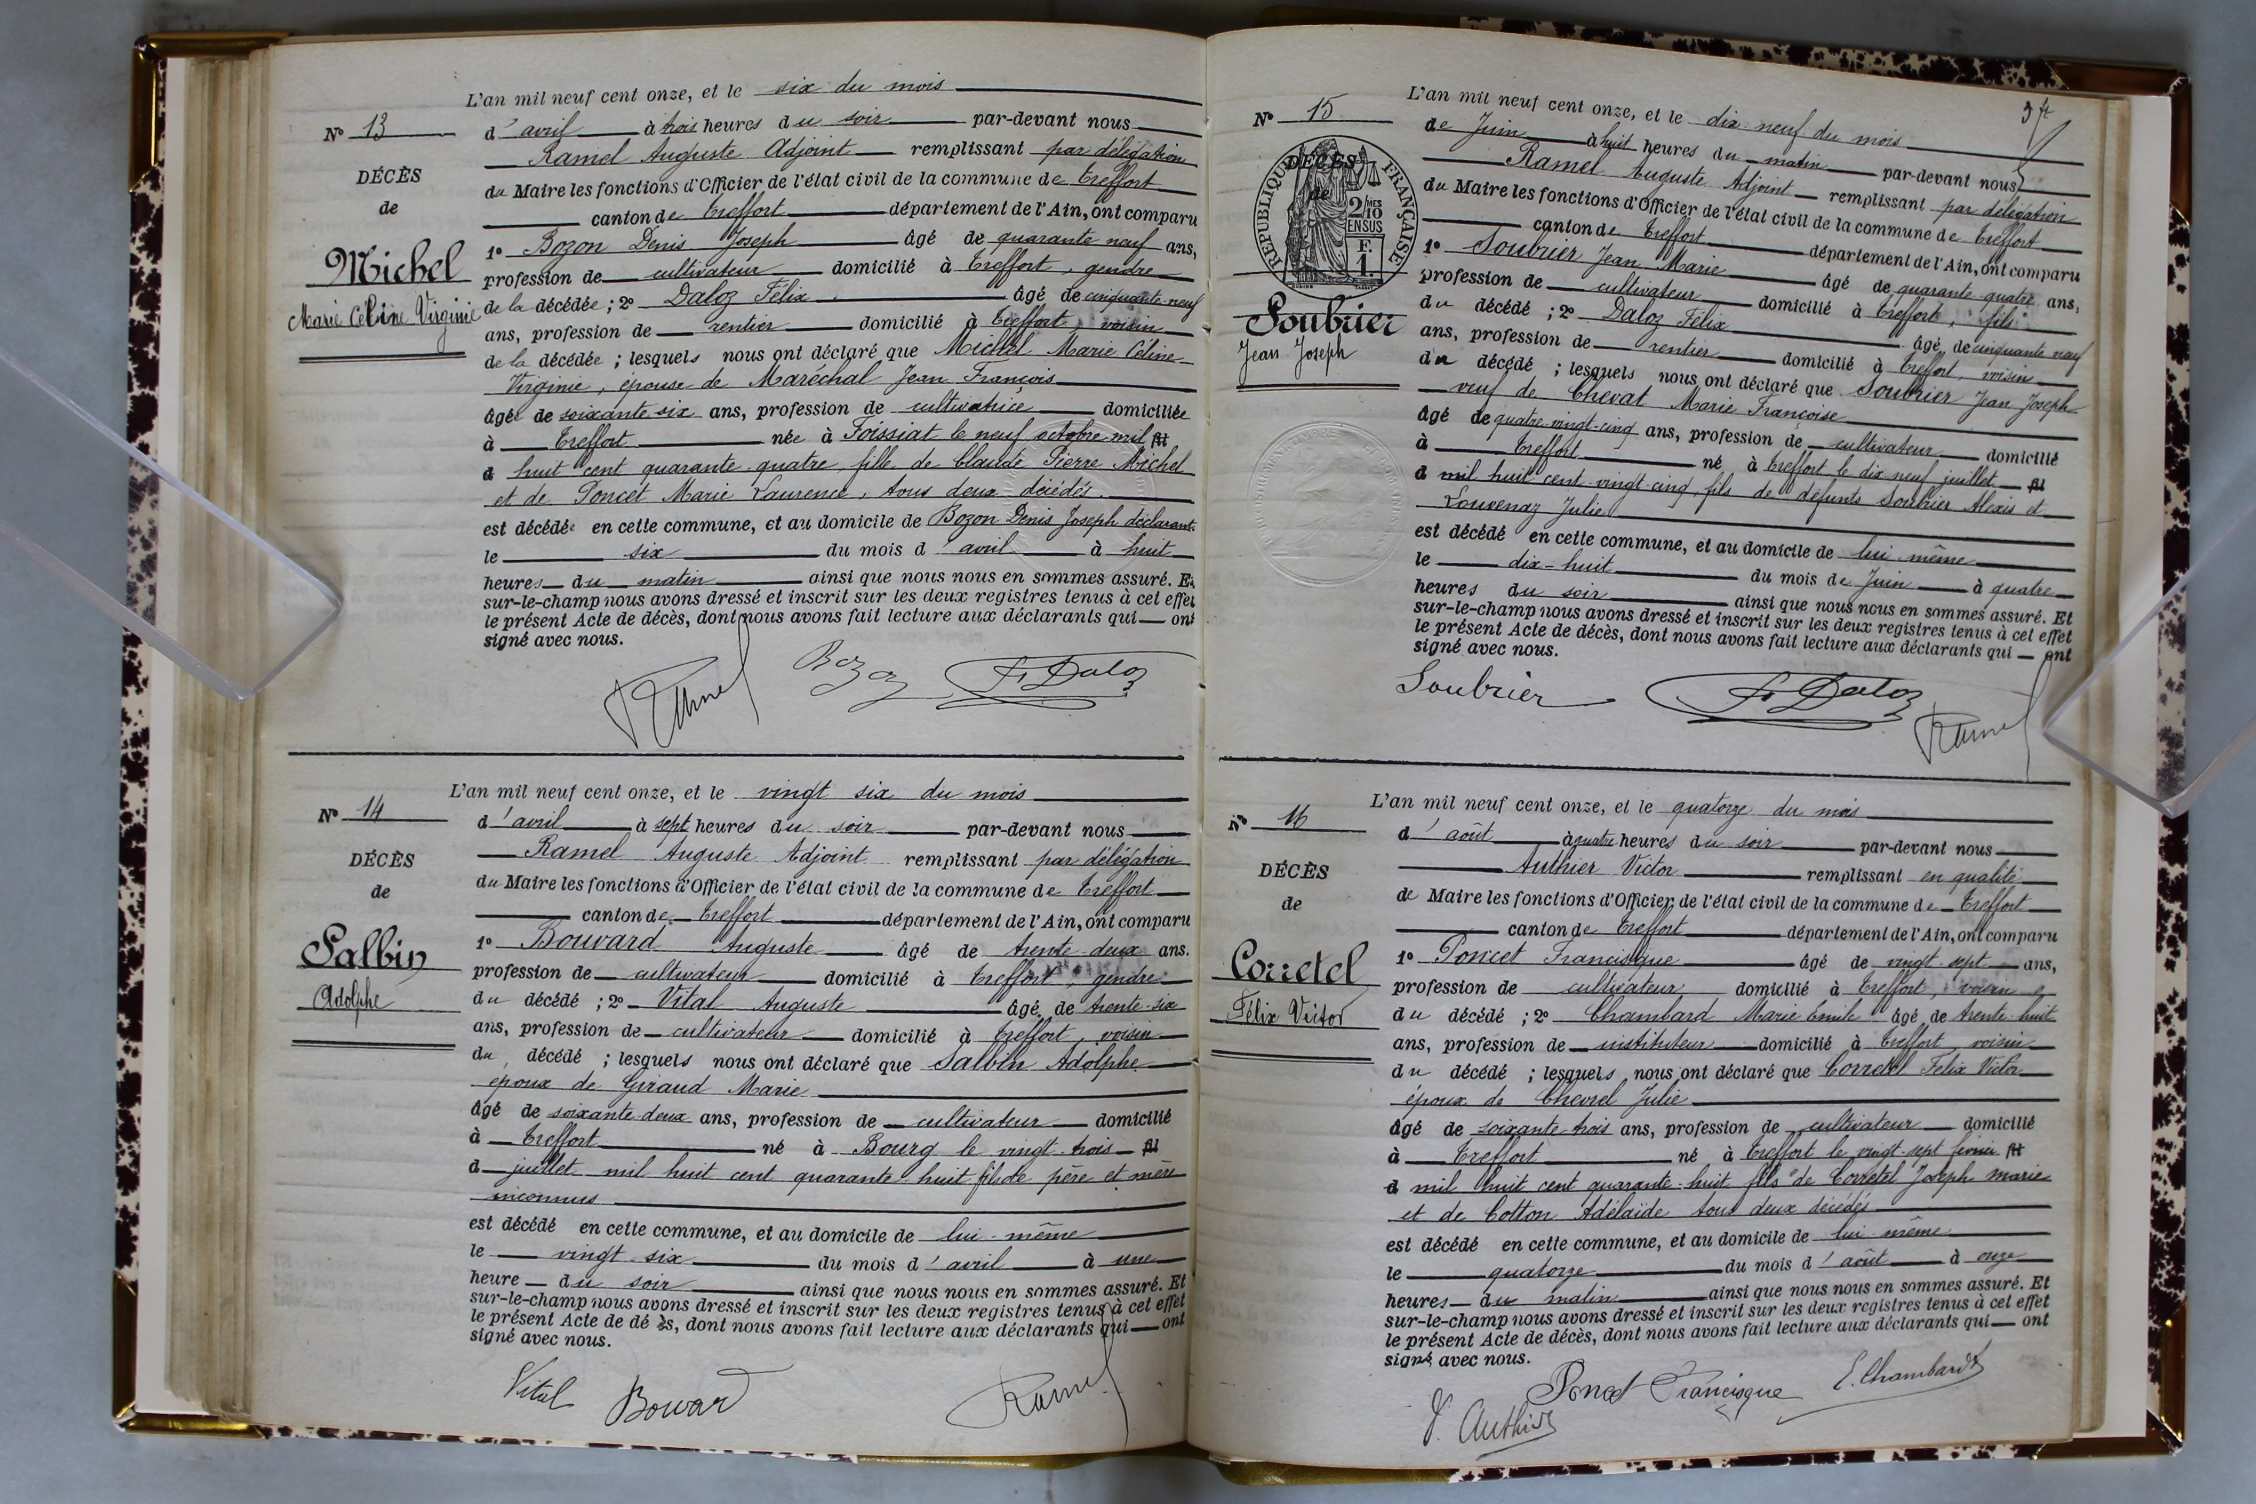 L'an mil neuf cent onze, et le six du mois
N° 13
d'avril à trois heures du soir par-devant nous
Ramel Auguste Adjoint remplissant par délégation
DÉCÈS
du Maire les fonctions d'Officier de l'état civil de la commune de Treffort
de
canton de Treffort département de l'Ain, ont comparu
1° Bozon Denis Joseph âgé de quarante neuf ans,
Michel
profession de cultivateur domicilié à Treffort, gendre
Marie Céline Virginie
de la décédée ; 2° Daloz Félix âgé de cinquante-neuf
ans, profession de rentier domicilié à Treffort, voisin
de la décédée ; lesquels nous ont déclaré que Michel Marie Céline
Virginie, épouse de Maréchal Jean François
âgée de soixante six ans, profession de cultivatrice domiciliée
à Treffort née à Foissiat le neuf octobre mil fil
d huit cent quarante-quatre, fille de Claude Pierre Michel
et de Poncet Marie Laurence, tous deux décédés.
est décédée en cette commune, et au domicile de Bozon Denis Joseph déclarant
le six du mois d'avril à huit
heures du matin ainsi que nous nous en sommes assuré. Et
sur-le-champ nous avons dressé et inscrit sur les deux registres tenus à cet effet
le présent Acte de décès, dont nous avons fait lecture aux déclarants qui ont
signé avec nous.
Ramel Bozon F. Daloz
L'an mil neuf cent onze, et le vingt six du mois
N° 14
d'avril à sept heures du soir par-devant nous
Ramel Auguste Adjoint remplissant par délégation
DÉCÈS
du Maire les fonctions d'Officier de l'état civil de la commune de Treffort
de
canton de Treffort département de l'Ain, ont comparu
1° Bouvard Auguste âgé de trente-deux ans.
Salbin
profession de cultivateur domicilié à Treffort, gendre
Adolphe
du décédé ; 2° Vital Auguste âgé de trente-six
ans, profession de cultivateur domicilié à Treffort, voisin
du décédé ; lesquels nous ont déclaré que Salbin Adolphe
époux de Giraud Marie
âgé de soixante-deux ans, profession de cultivateur domicilié
à Treffort né à Bourg le vingt-trois fil
d juillet mil huit cent quarante huit fils de père et mère
inconnus
est décédé en cette commune, et au domicile de lui-même
le vingt-six du mois d'avril à une
heure du soir ainsi que nous nous en sommes assuré. Et
sur-le-champ nous avons dressé et inscrit sur les deux registres tenus à cet effet
le présent Acte de dé ès, dont nous avons fait lecture aux déclarants qui ont
signé avec nous.
Vital Bouvard Ramel
L'an mil neuf cent onze, et le dix-neuf du mois
N° 15
de Juin à huit heures du matin par-devant nous
Ramel Auguste Adjoint remplissant par délégation
DÉCÈS
de
RÉPUBLIQUE FRANÇAISE
2/10MES
EN SUS
F.
1.
du Maire les fonctions d'Officier de l'état civil de la commune de Treffort
canton de Treffort département de l'Ain, ont comparu
1° Soubrier Jean Marie âgé de quarante-quatre ans,
profession de cultivateur domicilié à Treffort, fils
Soubrier
Jean Joseph
du décédé ; 2° Daloz Félix âgé de cinquante neuf
ans, profession de rentier domicilié à Treffort, voisin
du décédé ; lesquels nous ont déclaré que Soubrier Jean Joseph
veuf de Chevat Marie Françoise
âgé de quatre-vingt-cinq ans, profession de cultivateur domicilié
à Treffort né à Treffort le dix neuf juillet fil
d mil huit cent vingt cinq, fils de défunts Soubrier Alexis et
Louvenaz Julie
est décédé en cette commune, et au domicile de lui-même
le dix-huit du mois de Juin à quatre
heures du soir ainsi que nous nous en sommes assuré. Et
sur-le-champ nous avons dressé et inscrit sur les deux registres tenus à cet effet
le présent Acte de décès, dont nous avons fait lecture aux déclarants qui ont
signé avec nous.
Soubrier F. Daloz Ramel
L'an mil neuf cent onze, et le quatorze du mois
N° 16
d'août à quatre heures du soir par-devant nous
Authier Victor remplissant en qualité
DÉCÈS
de Maire les fonctions d'Officier de l'état civil de la commune de Treffort
de
canton de Treffort département de l'Ain, ont comparu
1° Poncet Francisque âgé de vingt-sept ans,
Corretel
profession de cultivateur domicilié à Treffort, voisin
Félix Victor
du décédé ; 2° Chambard Marie Emile âgé de trente-huit
ans, profession de instituteur domicilié à Treffort, voisin
du décédé ; lesquels nous ont déclaré que Corretel Félix Victor
époux de Chevrel Julie
âgé de soixante-trois ans, profession de cultivateur domicilié
à Treffort né à Treffort le vingt-sept février fil
d mil huit cent quarante-huit fils de Corretel Joseph marie
et de Cotton Adélaïde tous deux décédés
est décédé en cette commune, et au domicile de lui-même
le quatorze du mois d'août à onze
heures du matin ainsi que nous nous en sommes assuré. Et
sur-le-champ nous avons dressé et inscrit sur les deux registres tenus à cet effet
le présent Acte de décès, dont nous avons fait lecture aux déclarants qui ont
signé avec nous.
Poncet Francisque E. Chambard
V. Authier